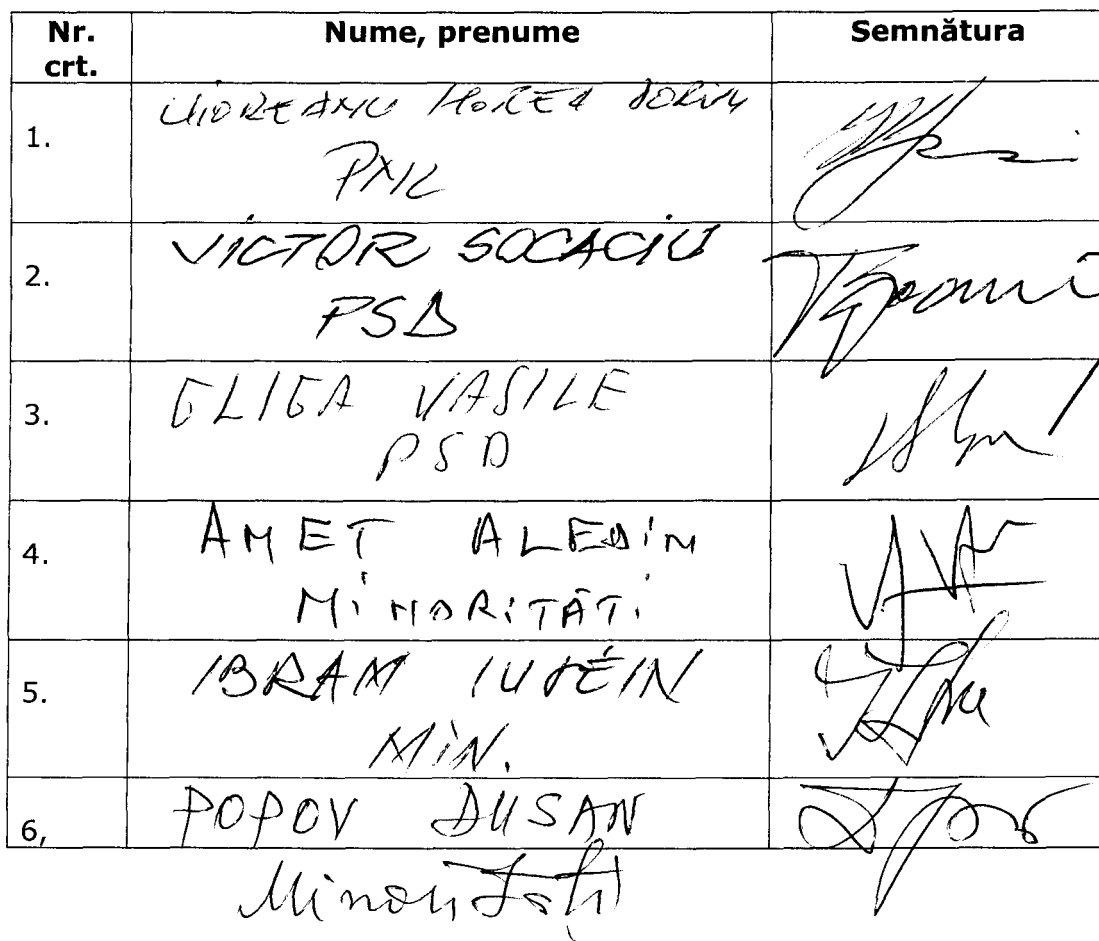 Nr. crt. Nume, prenume Semnătura
1. UIOREANU HOREA DORIN
PNL
2. VICTOR SOCACIU
PSD
3. GLIGA VASILE
PSD
4. AMET ALEDIN
MINORITĂȚI
5. IBRAM IUSEIN
MIN.
6, POPOV DUSAN
Minorități